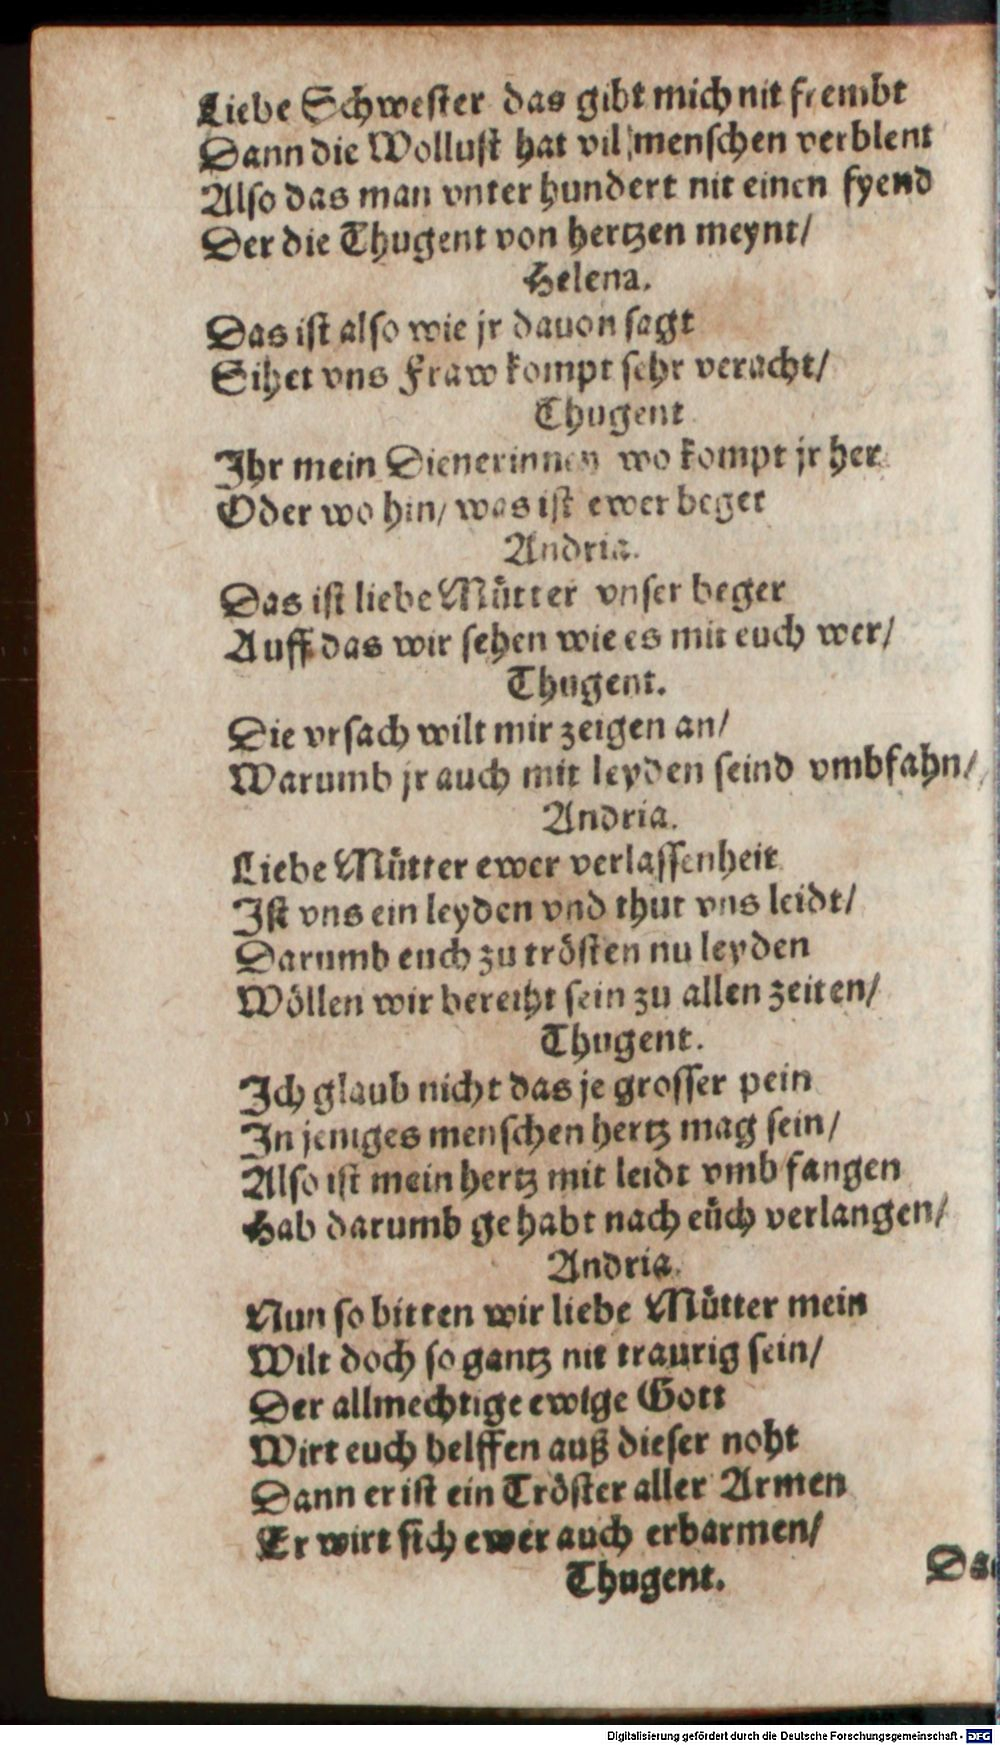 Liebe Schwester das gibt mich nit frembt
Dann die Wollust hat vil menschen verblent
Also das man vnter hundert nit einen fyend
Der die Thugent von hertzen meynt/
Helena.
Das ist also wie jr dauon sagt
Sihet vns Fraw kompt sehr veracht/
Thugent
Ihr mein Dienerinnen wo kompt jr her
Oder wo hin/ was ist ewer beger
Andria.
Das ist liebe Mütter vnser beger
Auff das wir sehen wie es mit euch wer/
Thugent.
Die vrsach wilt mir zeigen an/
Warumb jr auch mit leyden seind vmbfahn/
Andria.
Liebe Mütter ewer verlassenheit
Ist vns ein leyden vnd thut vns leidt/
Darumb euch zu trösten nu leyden
Wöllen wir bereiht sein zu allen zeiten/
Thugent.
Ich glaub nicht das je grosser pein
In jeniges menschen hertz mag sein/
Also ist mein hertz mit leidt vmb fangen
Hab darumb gehabt nach eüch verlangen/
Andria.
Nun so bitten wir liebe Mütter mein
Wilt doch so gantz nit traurig sein/
Der allmechtige ewige Gott
Wirt euch helffen auß dieser noht
Dann er ist ein Tröster aller Armen
Er wirt sich ewer auch erbarmen/
Thugent.
Das
Digitalisierung gefördert durch die Deutsche Forschungsgemeinschaft - DFG